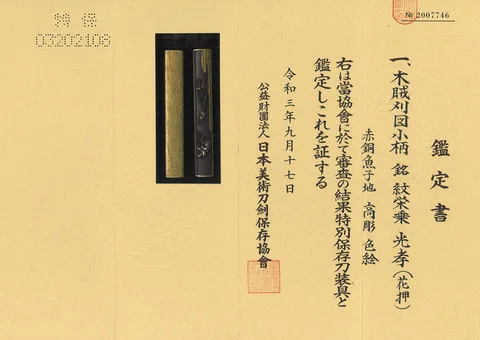 № 2007746
鑑定書
一、木賊刈図小柄 銘 紋栄乗 光孝(花押)
赤銅魚子地 高彫 色絵
右は當協會に於て審査の結果特別保存刀装具と
鑑定しこれを証する
令和三年九月十七日
公益財團法人 日本美術刀劍保存協會
特保
03202108